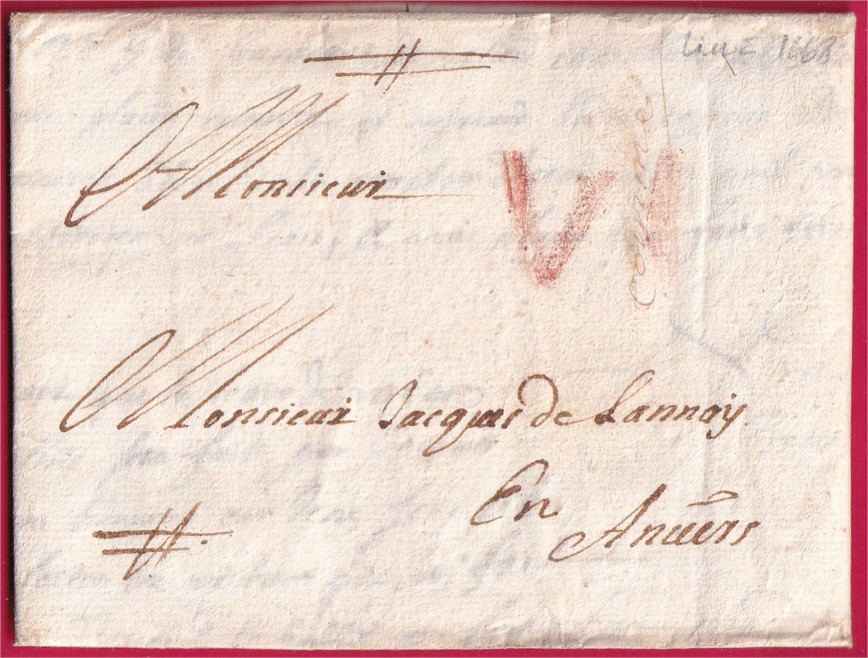 Lille 1168
Monsieur
VI
Monsieur Jacques de Lannoy
En
Anuers